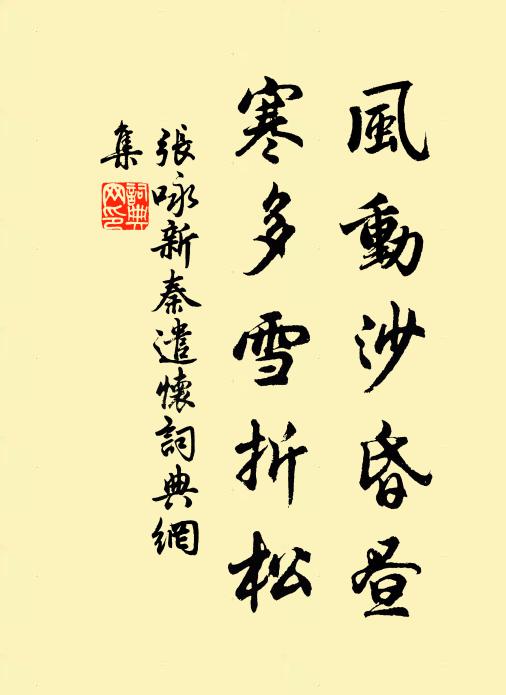 風動沙昏昼
寒多雪折松
張咏新秦遣懷詞典網
集
詞典
网印